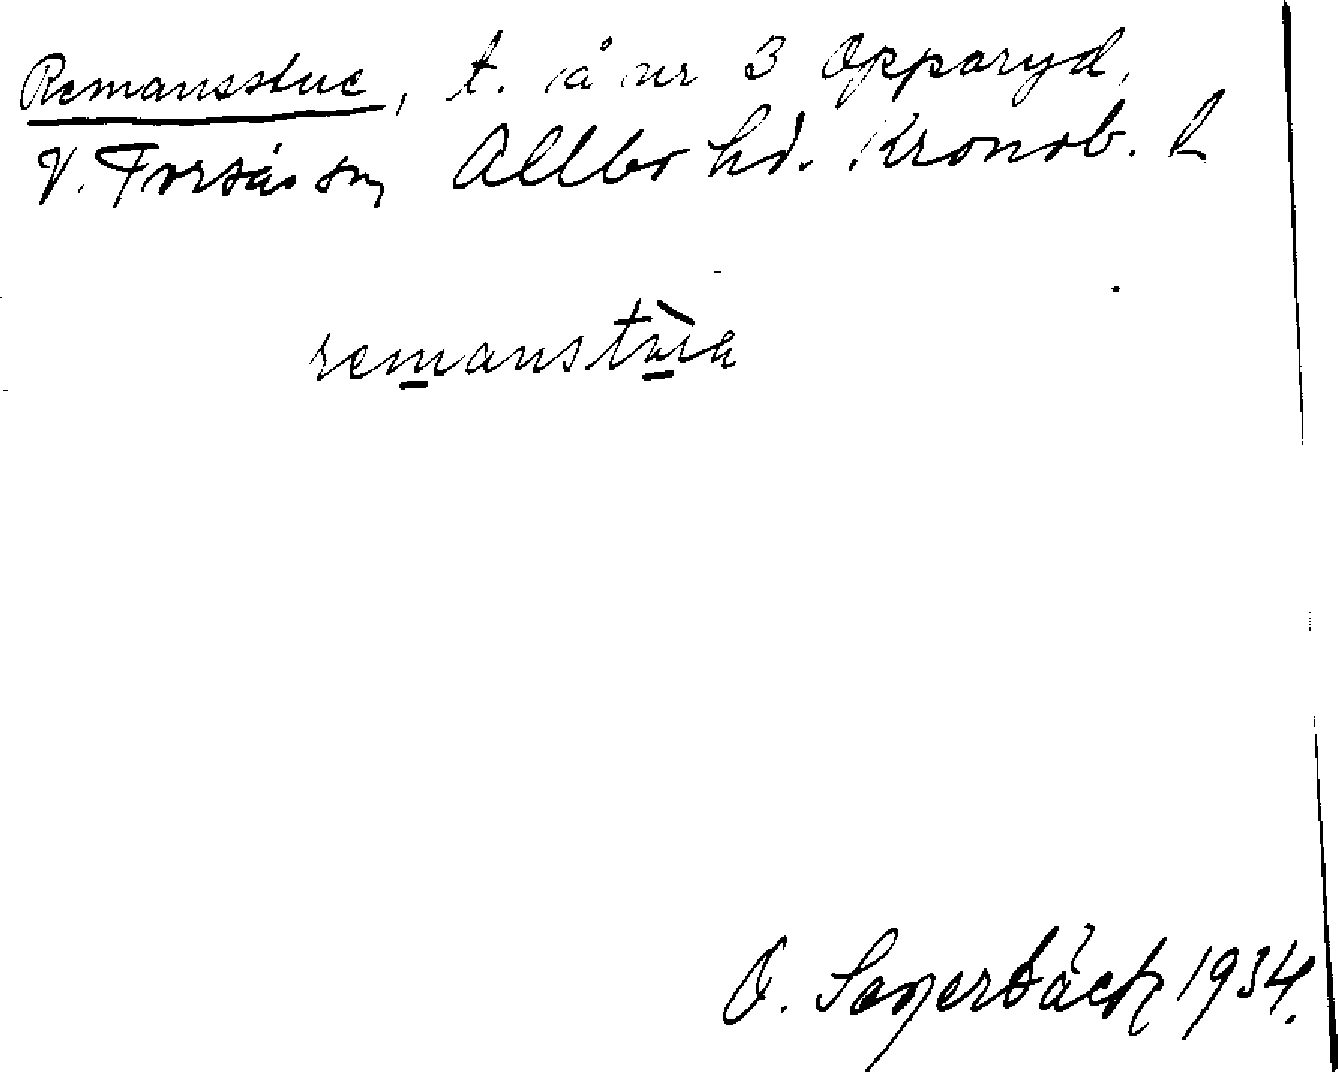 Remansstue, t. å nr 3 Opparyd,
V. Torsås sn, Allbo hd. Kronob. L
remanstuva
O. Sagerbäck 1934.